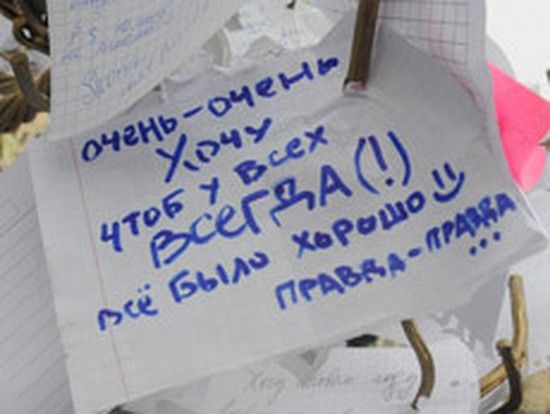 очень-очень
Хочу
чтоб у всех
ВСЕГДА(!)
всё было хорошо
правда-правда
...